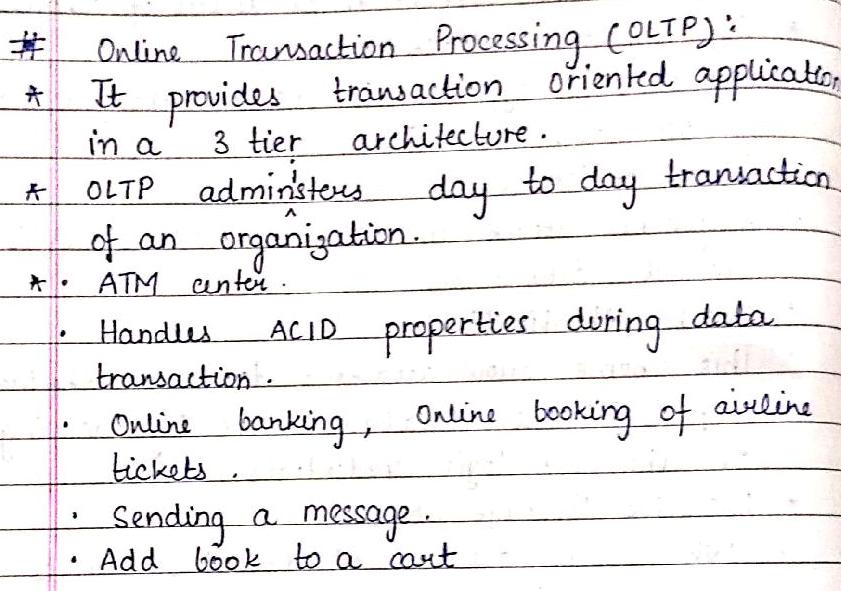 # Online Transaction Processing (OLTP):
* It provides transaction oriented application
in a 3 tier architecture.
* OLTP administers day to day transaction
of an organization.
* • ATM center.
• Handles ACID properties during data
transaction.
• Online banking, Online booking of airline
tickets.
• Sending a message.
• Add book to a cart